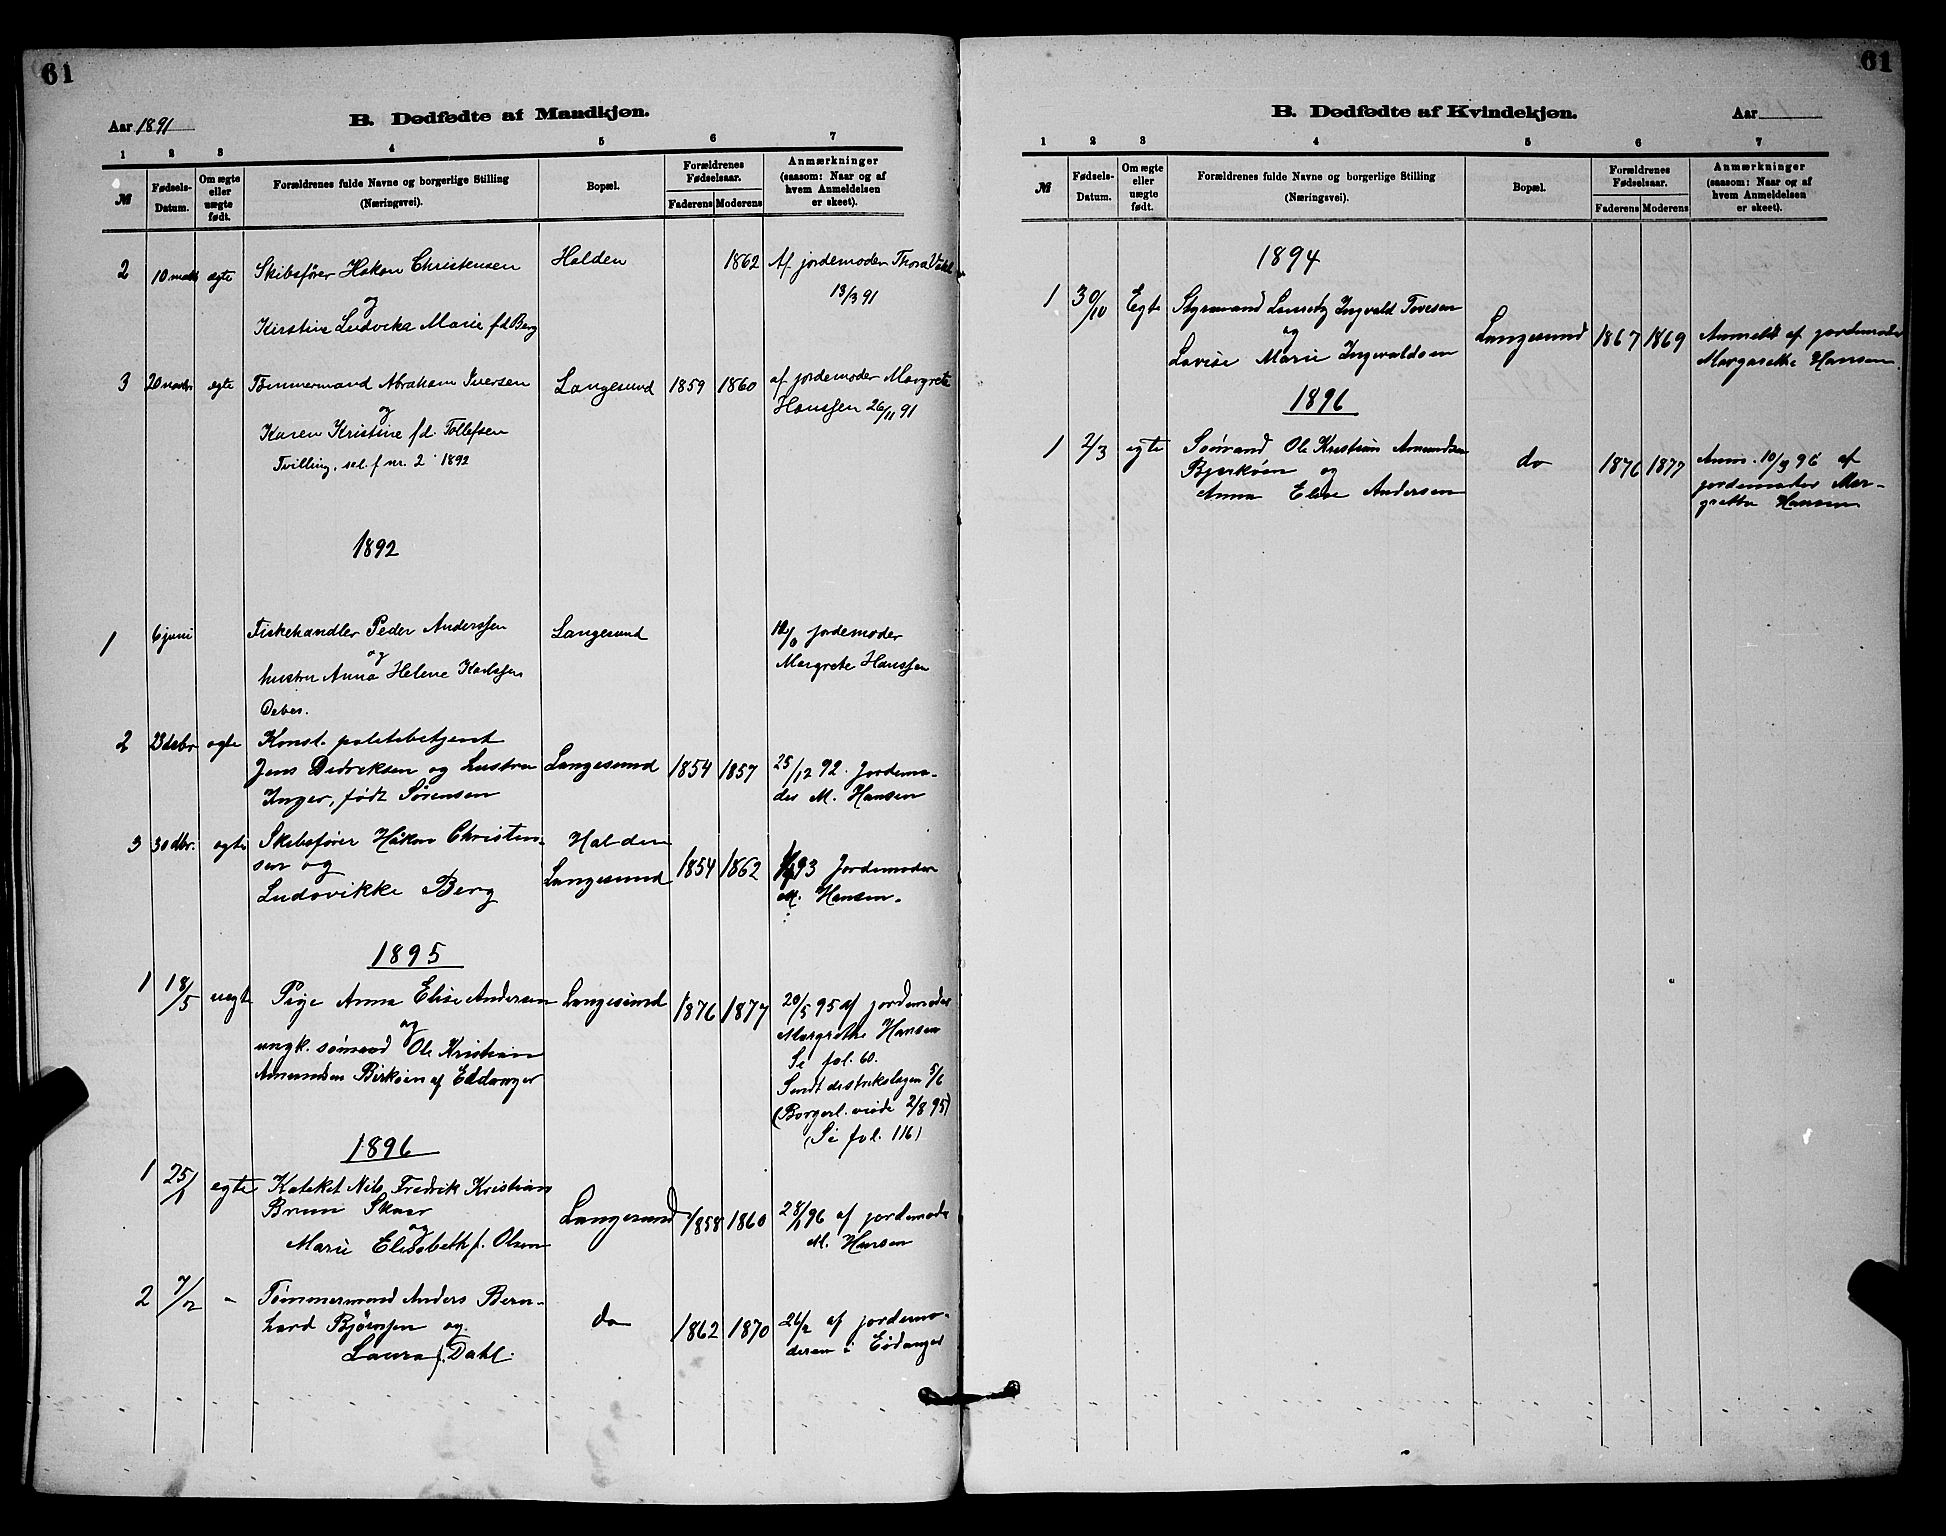 61
Aar 1891
B. Dødfødte af Mandkjøn.
1 2 3 4 5 6 7
№
Fødsels-
Datum.
Om ægte
eller
uægte
født.
Forældrenes fulde Navne og borgerlige Stilling
(Næringsvei).
Bopæl.
Forældrenes
Fødselsaar.
Faderens Moderens
Anmærkninger
(saasom: Naar og af
hvem Anmeldelsen
er skeet).
2 10 mats ægte Skibsfører Hakon Christensen Halden 1862 Af jordemoder Thora
og 13/3 91
Kirstine Ludvika Marie fd. Berg
3 20 novbr egte Tømmermand Abraham Iversen Langesund 1859 1860 af jordemoder Margrete
og Hanssen 26/11 91
Karen Kristine fd. Tollefsen
Tvilling, sel. f nr. 2 1892
1892
1 6 juni Fiskehandler Peder Anderssen Langesund jordemoder
og Margrete Hanssen
hustru Anna Helene Karlssen
2 23 debr ægte Konst. politibetjent
Jens Didriksen og hustru Langesund 1854 1857 25/12 92. Jordemo-
Inger, født Sørensen der M. Hansen
3 30 dbr. ægte Skibsfører Håkon Christen- Halden
sen og Langesund 1854 1862 93 Jordemoder
Ludovikke Berg M. Hansen.
1895
1 18/5 uegt Pige Anna Elise Andersen Langesund 1876 1877 20/5 95 af jordemoder
og Margrethe Hansen
ungk. sømand Ole Kristian Si fol. 60.
Amundsen Birkøen af Eidanger Sendt distrikslægen 5/6
(Borgerl. viede 2/8 95)
(Si fol. 116)
1896
1 25/1 egte Kateket Nils Fredrik Kristian
Bruun Skaar Langesund 1858 1860 28/1 96 af jordemoder
og M. Hansen
Marie Elisabeth f. Olsen
2 7/2 - Tømmermand Anders Bern-
hard Bjørnsen og do 1862 1870 26/2 af jordemo-
Laura f. Dahl. deren i Eidanger
61
B. Dødfødte af Kvindekjøn.
Aar
1 2 3 4 5 6 7
№
Fødsels-
Datum.
Om ægte
eller
uægte
født.
Forældrenes fulde Navne og borgerlige Stilling
(Næringsvei).
Bopæl.
Forældrenes
Fødselsaar.
Faderens Moderens
Anmærkninger
(saasom: Naar og af
hvem Anmeldelsen
er skeet).
1894
1 30/10 Egte Styrmand Lauritz Ingvald Tovesen
og Langesund 1867 1869 Anmeldt af jordemoder
Lovise Marie Ingevaldsen Margarethe Hansen.
1896
1 2/3 egte Sømand Ole Kristian Amundsen
Bjerkøen og do 1876 1877 Anm. 10/3 96 af
Anna Elise Andersen jordemoder Mar-
grethe Hansen